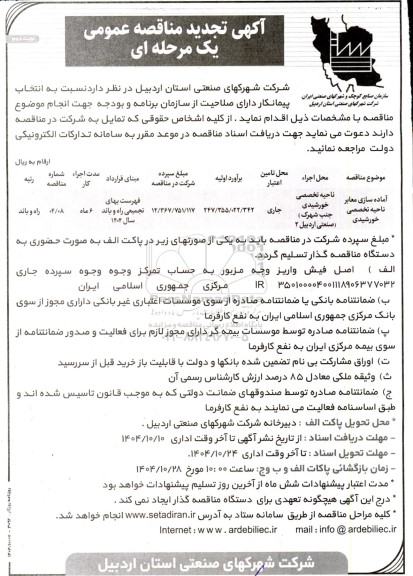 آگهی تجدید مناقصه عمومی
یک مرحله ای
نوبت دوم
سازمان صنایع کوچک و شهرکهای صنعتی ایران
شرکت شهرکهای صنعتی استان اردبیل
شرکت شهرکهای صنعتی استان اردبیل در نظر دارد نسبت به انتخاب
پیمانکار دارای صلاحیت از سازمان برنامه و بودجه جهت انجام موضوع
مناقصه با مشخصات ذیل اقدام نماید . از کلیه اشخاص حقوقی که تمایل به شرکت در مناقصه
دارند دعوت می نماید جهت دریافت اسناد مناقصه در موعد مقرر به سامانه تدارکات الکترونیکی
دولت مراجعه نمائید.
ارقام به ریال
موضوع مناقصه | محل اجراء | محل تامین اعتبار | برآورد اولیه | مبلغ سپرده شرکت در مناقصه | مبنای قرارداد | مدت اجراء کار | شماره مناقصه | رتبه
آماده سازی معابر ناحیه تخصصی خورشیدی | ناحیه تخصصی خورشیدی (جنب شهرک صنعتی اردبیل ۲) | جاری | ۲۴۷/۳۵۵/۰۲۲/۳۴۲ | ۱۲/۳۶۷/۷۵۱/۱۱۷ | فهرست بهای تجمیعی راه و باند سال ۱۴۰۳ | ۶ ماه | ۰۴/۰۸ | راه و باند
* مبلغ سپرده شرکت در مناقصه باید به یکی از صورتهای زیر در پاکت الف به صورت حضوری به
دستگاه مناقصه گذار تسلیم گردد.
الف ) اصل فیش واریز وجه مزبور به حساب تمرکز وجوه وجوه سپرده جاری
IR ۳۵۰۱۰۰۰۰۴۰۰۱۱۱۸۹۰۶۳۷۷۰۳۲ مرکزی جمهوری اسلامی ایران
ب) ضمانتنامه بانکی یا ضمانتنامه صادره از سوی موسسات اعتباری غیر بانکی دارای مجوز از سوی
بانک مرکزی جمهوری اسلامی ایران به نفع کارفرما
پ) ضمانتنامه صادره توسط موسسات بیمه گر دارای مجوز لازم برای فعالیت و صدور ضمانتنامه از
سوی بیمه مرکزی ایران به نفع کارفرما
ت) اوراق مشارکت بی نام تضمین شده بانکها و دولت با قابلیت باز خرید قبل از سررسید
ث) وثیقه ملکی معادل ۸۵ درصد ارزش کارشناس رسمی آن
ج) ضمانتنامه صادره توسط صندوقهای ضمانت دولتی که به موجب قانون تاسیس شده اند و
طبق اساسنامه فعالیت می نمایند به نفع کارفرما
* محل تحویل پاکت الف : دبیرخانه شرکت شهرکهای صنعتی اردبیل .
- مهلت دریافت اسناد : از تاریخ نشر آگهی تا آخر وقت اداری ۱۴۰۴/۱۰/۱۰
- مهلت تحویل اسناد : تا آخر وقت اداری ۱۴۰۴/۱۰/۲۴.
- زمان بازگشائی پاکات الف و ب وج: ساعت ۱۰:۰۰ مورخ ۱۴۰۴/۱۰/۲۸
* مدت اعتبار پیشنهادات شش ماه از آخرین روز تسلیم پیشنهادات خواهد بود
* درج این آگهی هیچگونه تعهدی برای دستگاه مناقصه گذار ایجاد نمی کند .
* کلیه مراحل مناقصه از طریق سامانه ستاد به آدرس www.setadiran.ir انجام خواهد شد.
Internet : www . ardebiliec.ir mail : info @ ardebiliec.ir
شرکت شهرکهای صنعتی استان اردبیل